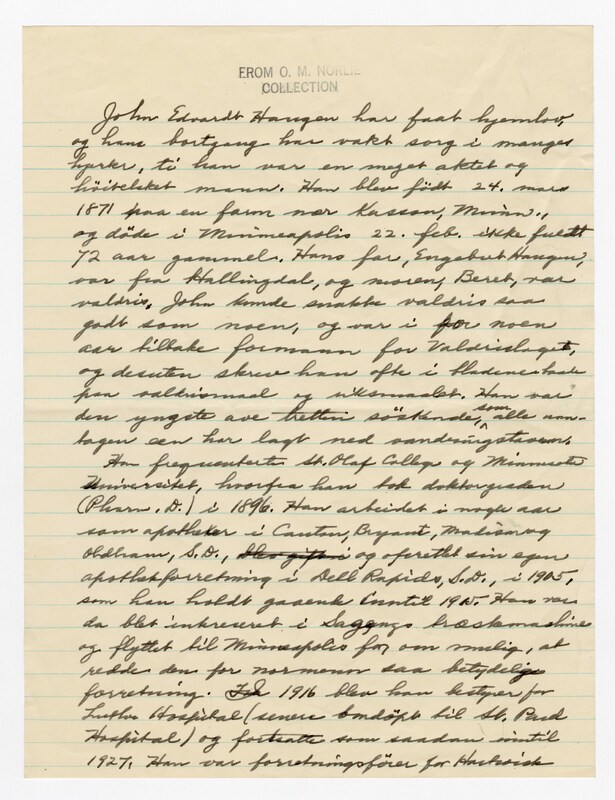 FROM O. M. NORLIE
COLLECTION
John Edvardt Haugen har faat hjemlov,
og hans bortgang har vakt sorg i manges
hjerter, ti han var en meget aktet og
høitelsket mann. Han blev født 24. mars
1871 paa en farm nær Kasson, Minn.,
og døde i Minneapolis 22. feb. ikke fuldt
72 aar gammel. Hans far, Engebret Haugen,
var fra Hallingdal, og moren, Beret, var
valdris. John kunde snakke valdris saa
godt som noen, og var i for noen
aar tilbake formann for Valdrislaget,
og desuten skrev han ofte i bladene baade
paa valdrismaal og riksmaalet. Han var
den yngste av tretten søskende, som alle
tagen een har lagt ned vandringsstaven.
Han frequenterte St. Olaf College og Minnesota
Universitet, hvorfra han tok doktorgraden
(Pharm. D.) i 1896. Han arbeidet i nogle aar
som apotheker i Canton, Bryant, Madison og
Oldham, S.D., blev gift i og oprettet sin egen
apothekforretning i Dell Rapids, S.D., i 1905,
som han holdt gaaende inntil 1915. Han var
da blet interesert i træskemaskine
og flyttet til Minneapolis for, om mulig, at
redde den for normenn saa betydelige
forretning. 1916 blev han bestyrer for
Luther Hospital (senere omdøpt til St. Paul
Hospital) og fortsatte som saadan inntil
1927. Han var forretningsfører for